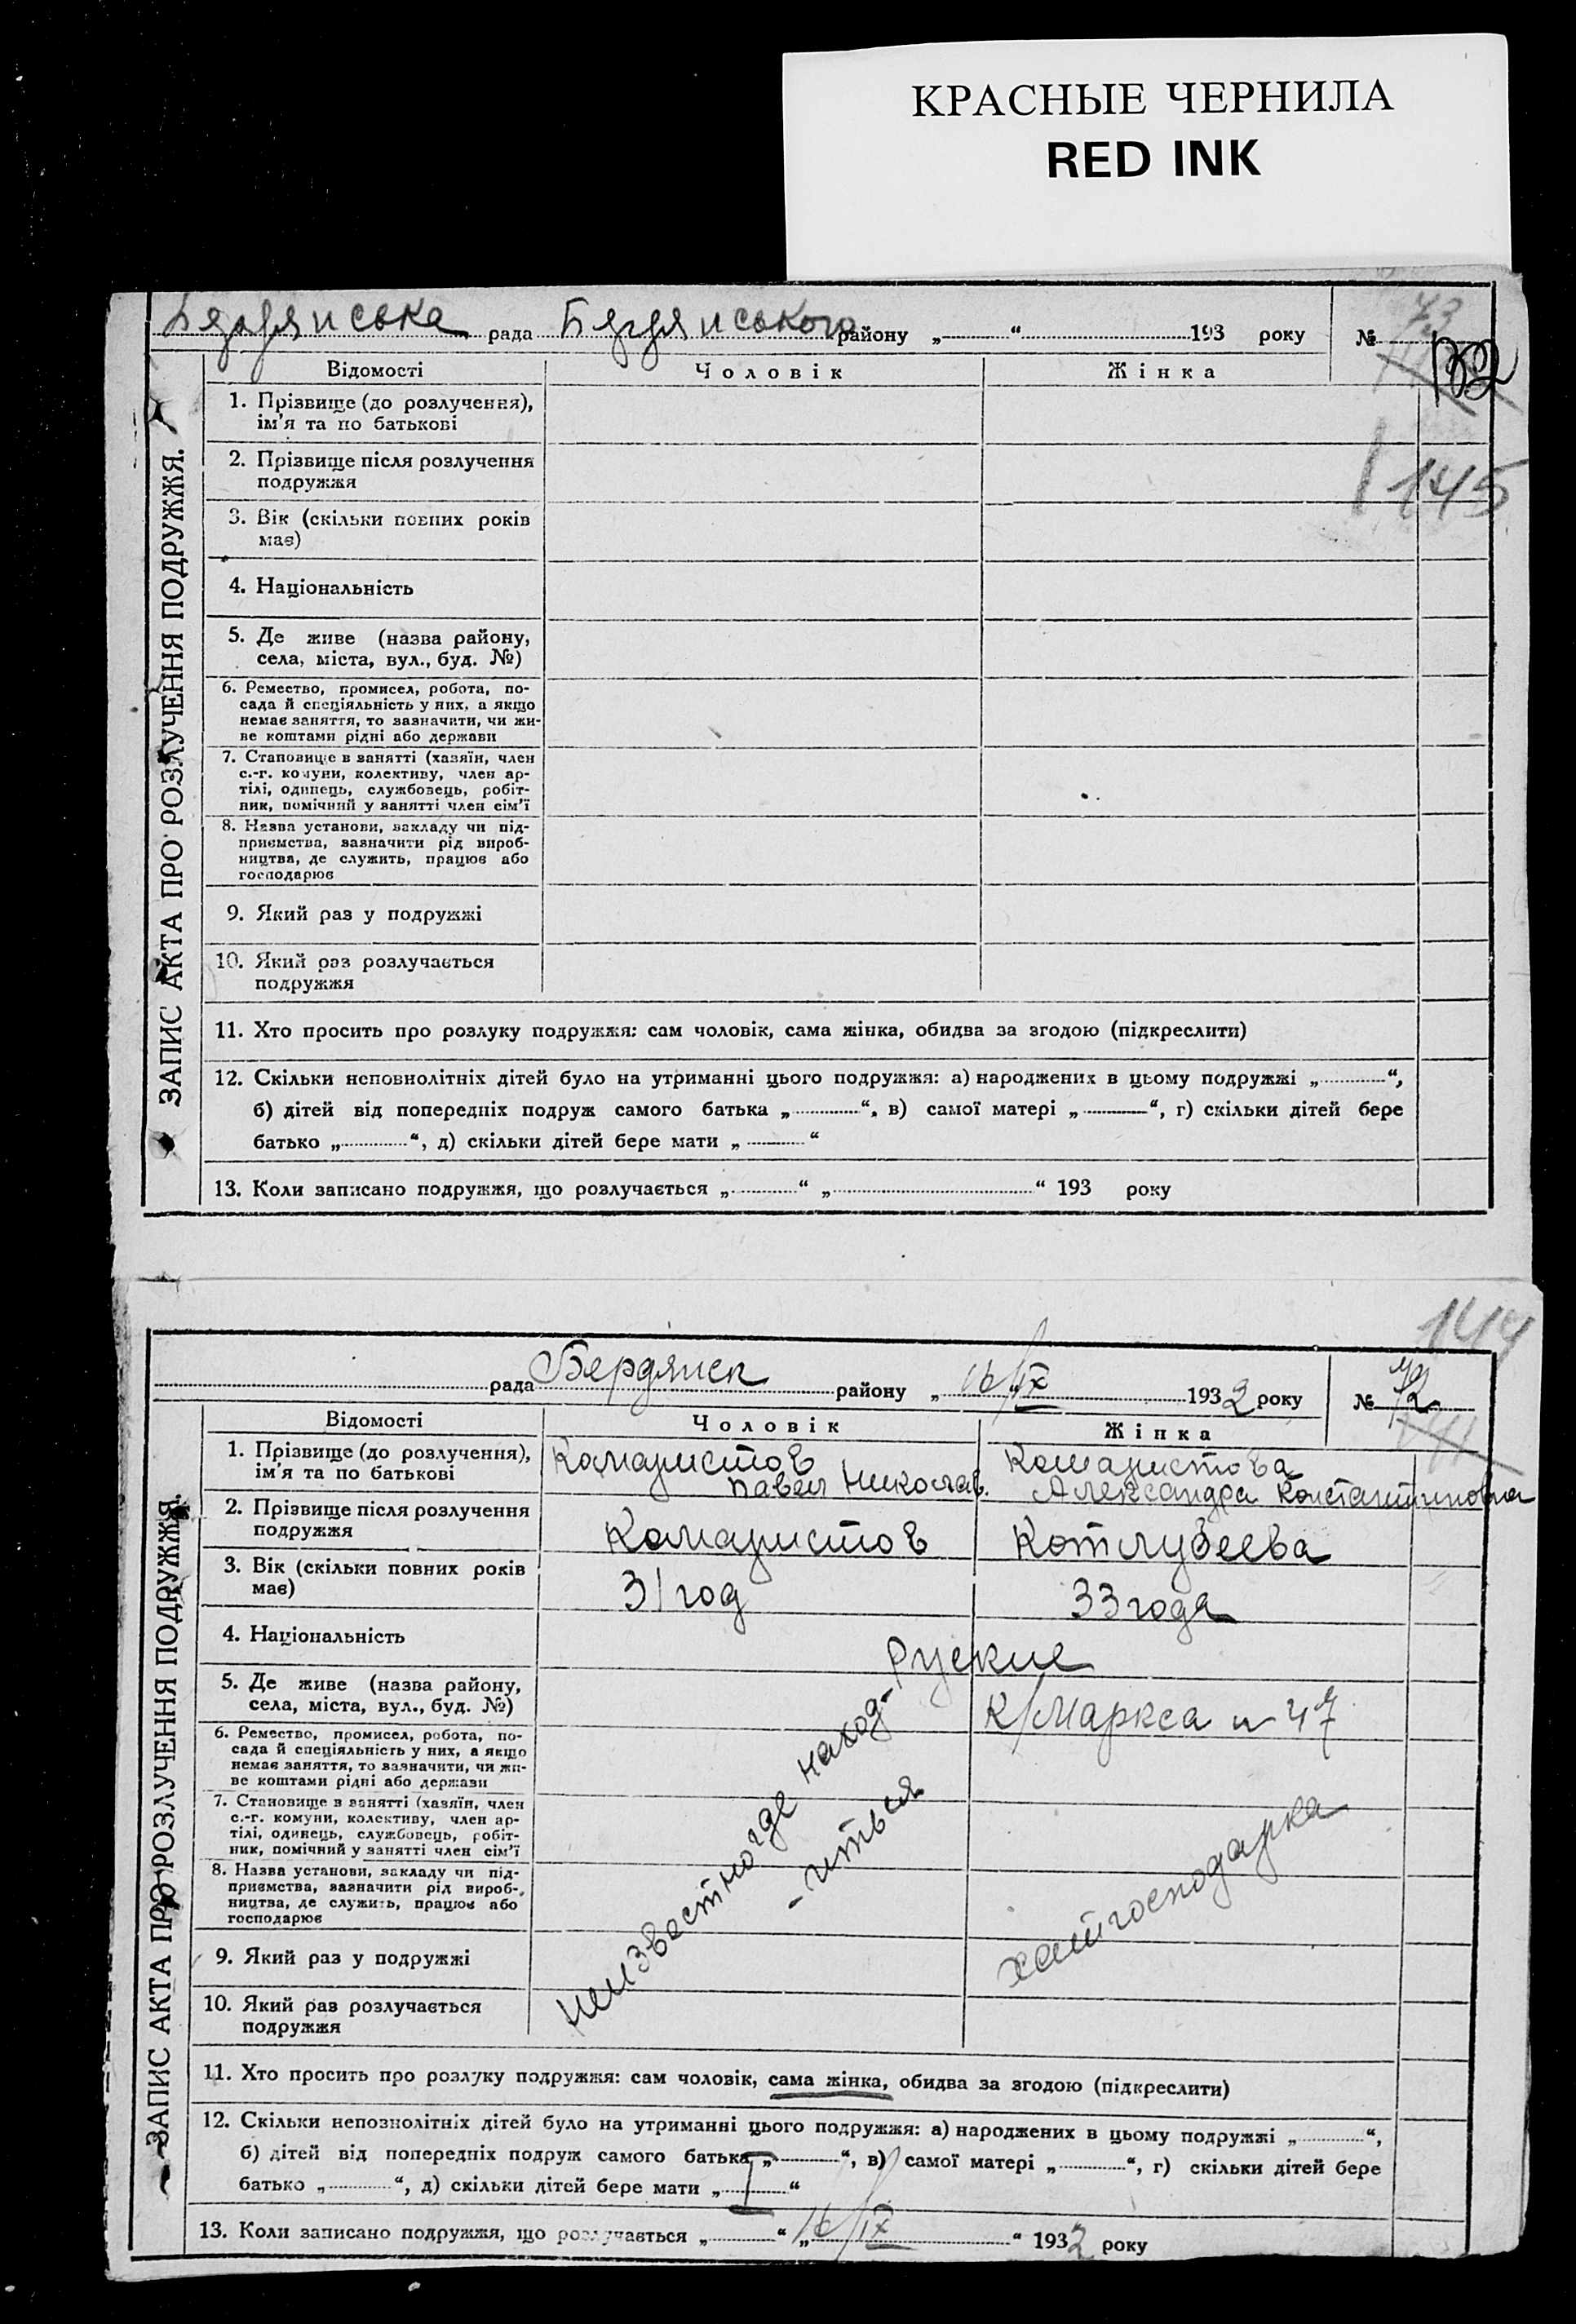 КРАСНЫЕ ЧЕРНИЛА
RED INK
Бердянська рада Бердянського району „ “ 193 року № 73
132
145
ЗАПИС АКТА ПРО РОЗЛУЧЕННЯ ПОДРУЖЖЯ.
Відомості Чоловік Жінка
1. Прізвище (до розлучення),
ім'я та по батькові
2. Прізвище після розлучення
подружжя
3. Вік (скільки повних років
має)
4. Національність
5. Де живе (назва району,
села, міста, вул., буд. №)
6. Ремество, промисел, робота, по-
сада й спеціяльність у них, а якщо
немає заняття, то зазначити, чи жи-
ве коштами рідні або держави
7. Становище в занятті (хазяїн, член
с.-г. комуни, колективу, член ар-
тілі, одинець, службовець, робіт-
ник, помічний у занятті член сім'ї
8. Назва установи, закладу чи під-
приємства, зазначити рід вироб-
ництва, де служить, працює або
господарює
9. Який раз у подружжі
10. Який раз розлучається
подружжя
11. Хто просить про розлуку подружжя: сам чоловік, сама жінка, обидва за згодою (підкреслити)
12. Скільки неповнолітніх дітей було на утриманні цього подружжя: а) народжених в цьому подружжі „ “,
б) дітей від попередніх подруж самого батька „ “, в) самої матері „ “, г) скільки дітей бере
батько „ “, д) скільки дітей бере мати „ “
13. Коли записано подружжя, що розлучається „ “ „ “ 193 року
144
рада Бердянск району „ 16/IX 1932 року № 72
ЗАПИС АКТА ПРО РОЗЛУЧЕННЯ ПОДРУЖЖЯ.
Відомості Чоловік Жінка
1. Прізвище (до розлучення), Камаристов Камаристова
ім'я та по батькові Павел Николав. Александра Константиновна
2. Прізвище після розлучення
подружжя Камаристов Котлубеева
3. Вік (скільки повних років
має) 31 год 33 года
4. Національність Руские
5. Де живе (назва району,
села, міста, вул., буд. №) К/Маркса н 47
6. Ремество, промисел, робота, по-
сада й спеціяльність у них, а якщо
немає заняття, то зазначити, чи жи-
ве коштами рідні або держави
7. Становище в занятті (хазяїн, член
с.-г. комуни, колективу, член ар-
тілі, одинець, службовець, робіт-
ник, помічний у занятті член сім'ї
8. Назва установи, закладу чи під-
приємства, зазначити рід вироб-
ництва, де служить, працює або
господарює
неизвестно где наход-
-иться
хатгосподарка
9. Який раз у подружжі
10. Який раз розлучається
подружжя
11. Хто просить про розлуку подружжя: сам чоловік, сама жінка, обидва за згодою (підкреслити)
12. Скільки неповнолітніх дітей було на утриманні цього подружжя: а) народжених в цьому подружжі „ “,
б) дітей від попередніх подруж самого батька „ “, в) самої матері „ “, г) скільки дітей бере
батько „ “, д) скільки дітей бере мати „ I “
13. Коли записано подружжя, що розлучається „ “ „ 16/IX “ 1932 року